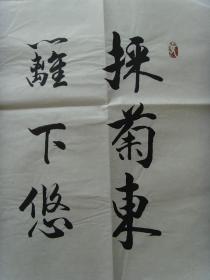 採菊東
籬下悠